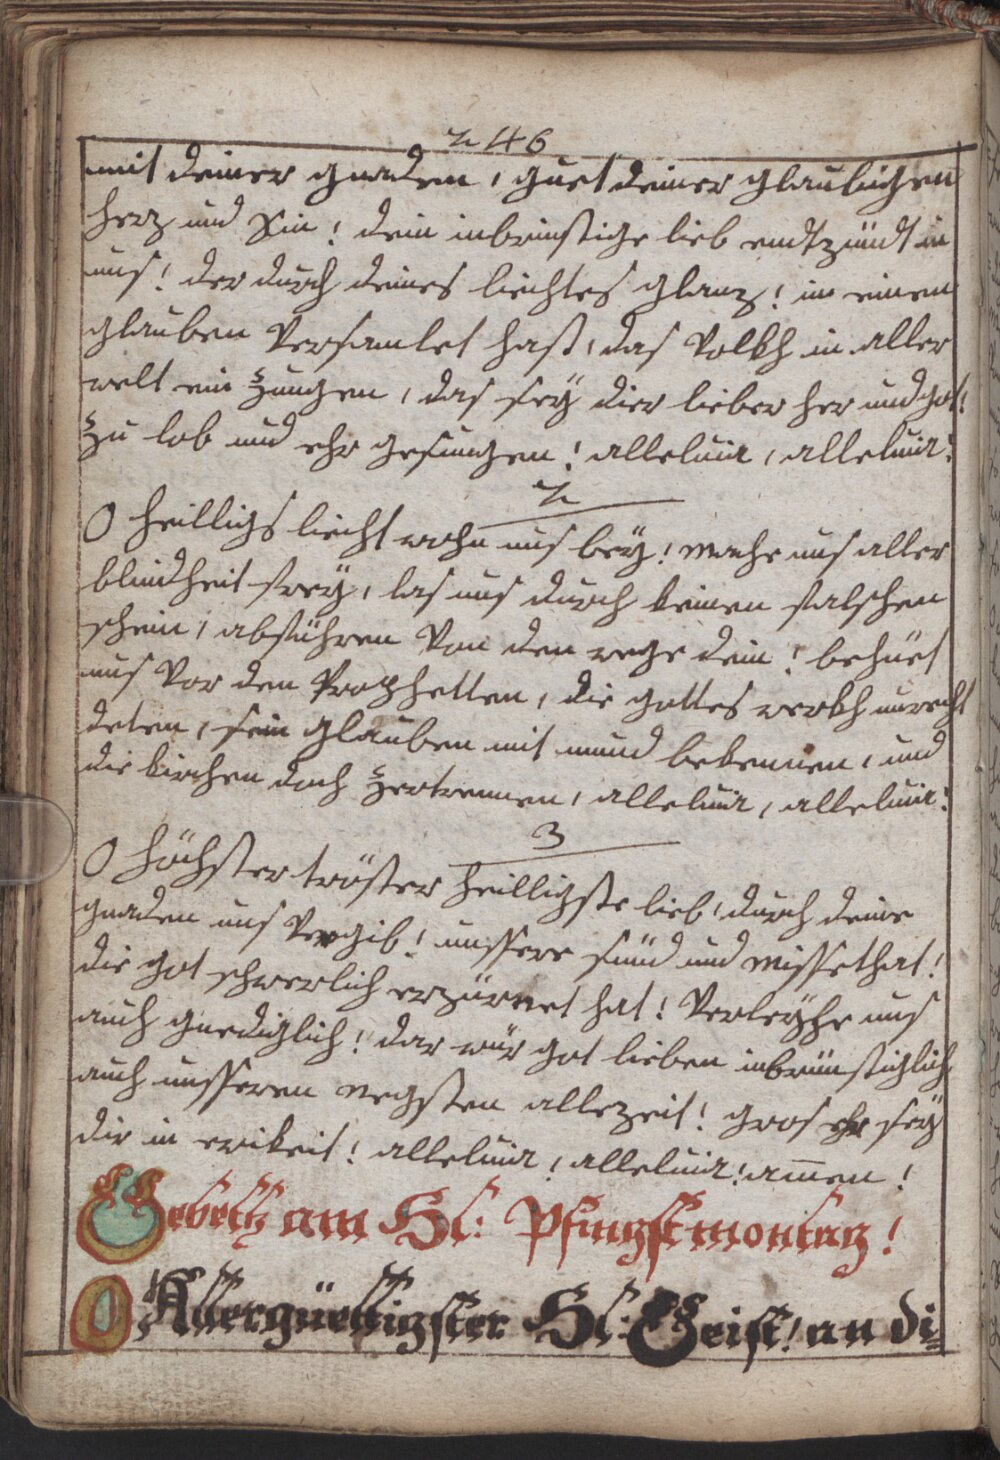 246
mit deiner gnaden, guet deiner glaubigen
herz und Sin! dein inbrinstige lieb endtzündt in
uns! der durch deines liechtes glanz! in einen
glauben Versamlet hast, das Volkh in aller
welt ein Zungen, das seÿ dier lieber her und got!
Zu lob und ehr gesungen! alleluia, alleluia!
2
O heilligs liecht wohn uns beÿ! mache uns aller
blindheit freÿ, las uns durch keinen falschen
schein, abführen Von den wege dein! behüet
uns Vor den Prophetten, die gottes werkh unrecht
deten, sein glauben mit mund bekennen, und
die kirchen doch Zertrennen, alleluia, alleluia!
3
O höchster tröster heilligste lieb! durch deine
gnaden uns Vergib! unssere sünd und missethat!
die got schwerlich erzürnet hat! Verleÿhe uns
auch gnediglich! dar wür got lieben inbrünstiglich,
auch unsseren negsten allezeit! gros ehr seÿ
dir in ewikeit! alleluia! alleluia! amen!
Gebett am Hl: Pfingstmontag!
O Allergüettigster Hl: Geist! an di=